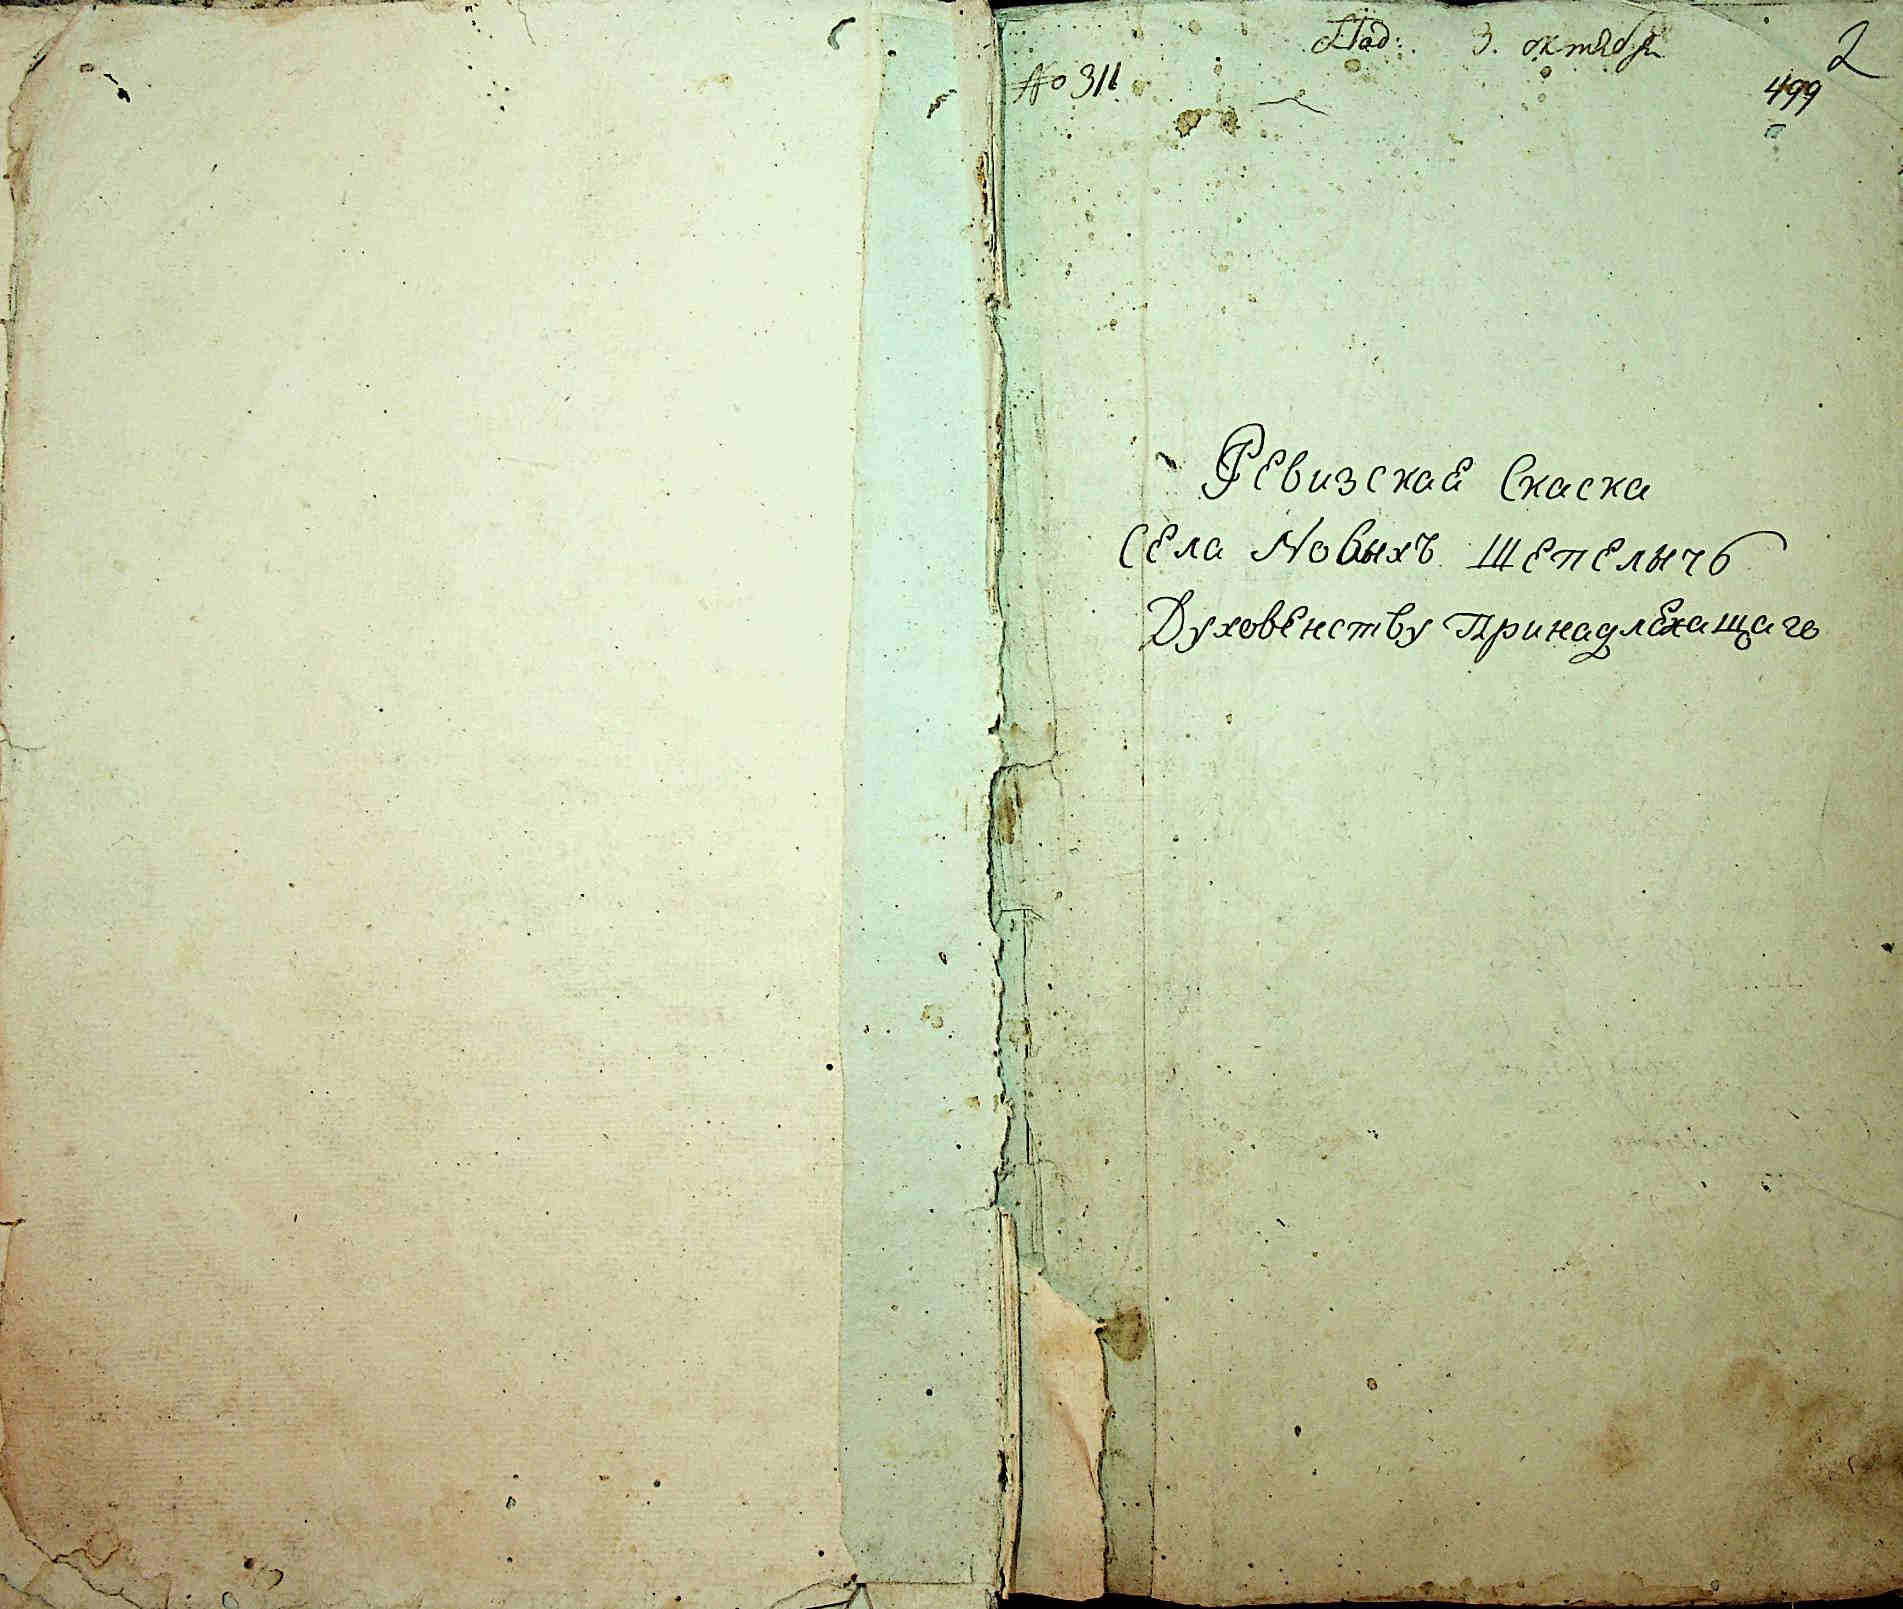 Под: 3. октября
2
№ 311
499
Ревизская Скаска
Села Новыхъ Шепеличъ
Духовенству Принадлежащаго